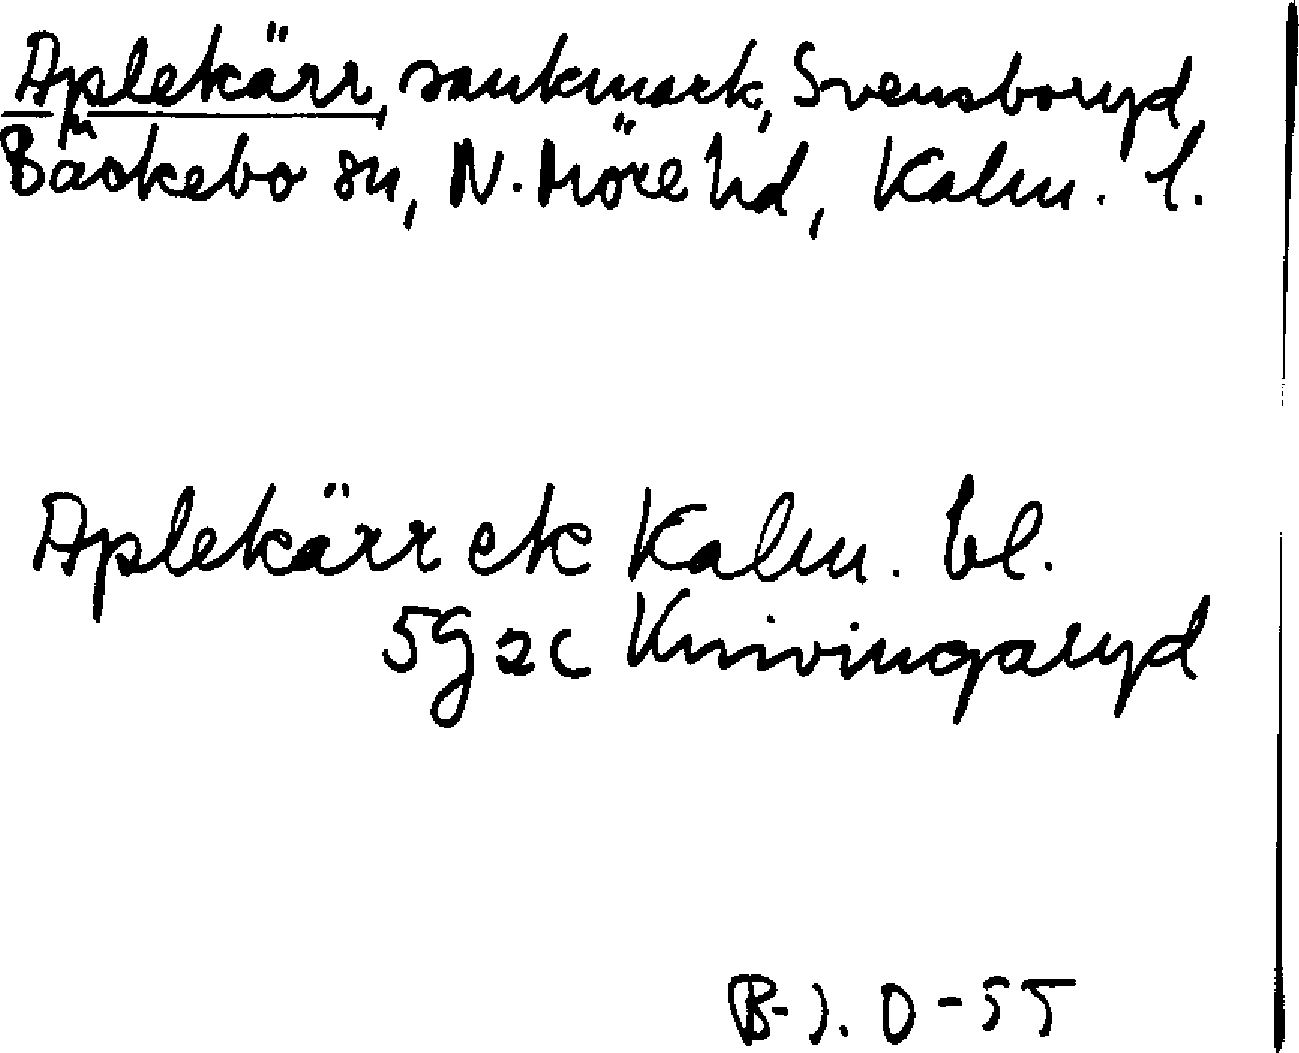 Aplekärr, sankmark, Svensboryd
Bäckebo sn, N. Möre hd, Kalm. l.
Aplekärr ek Kalm. bl.
5g2c Knivingaryd
B-J. O-55